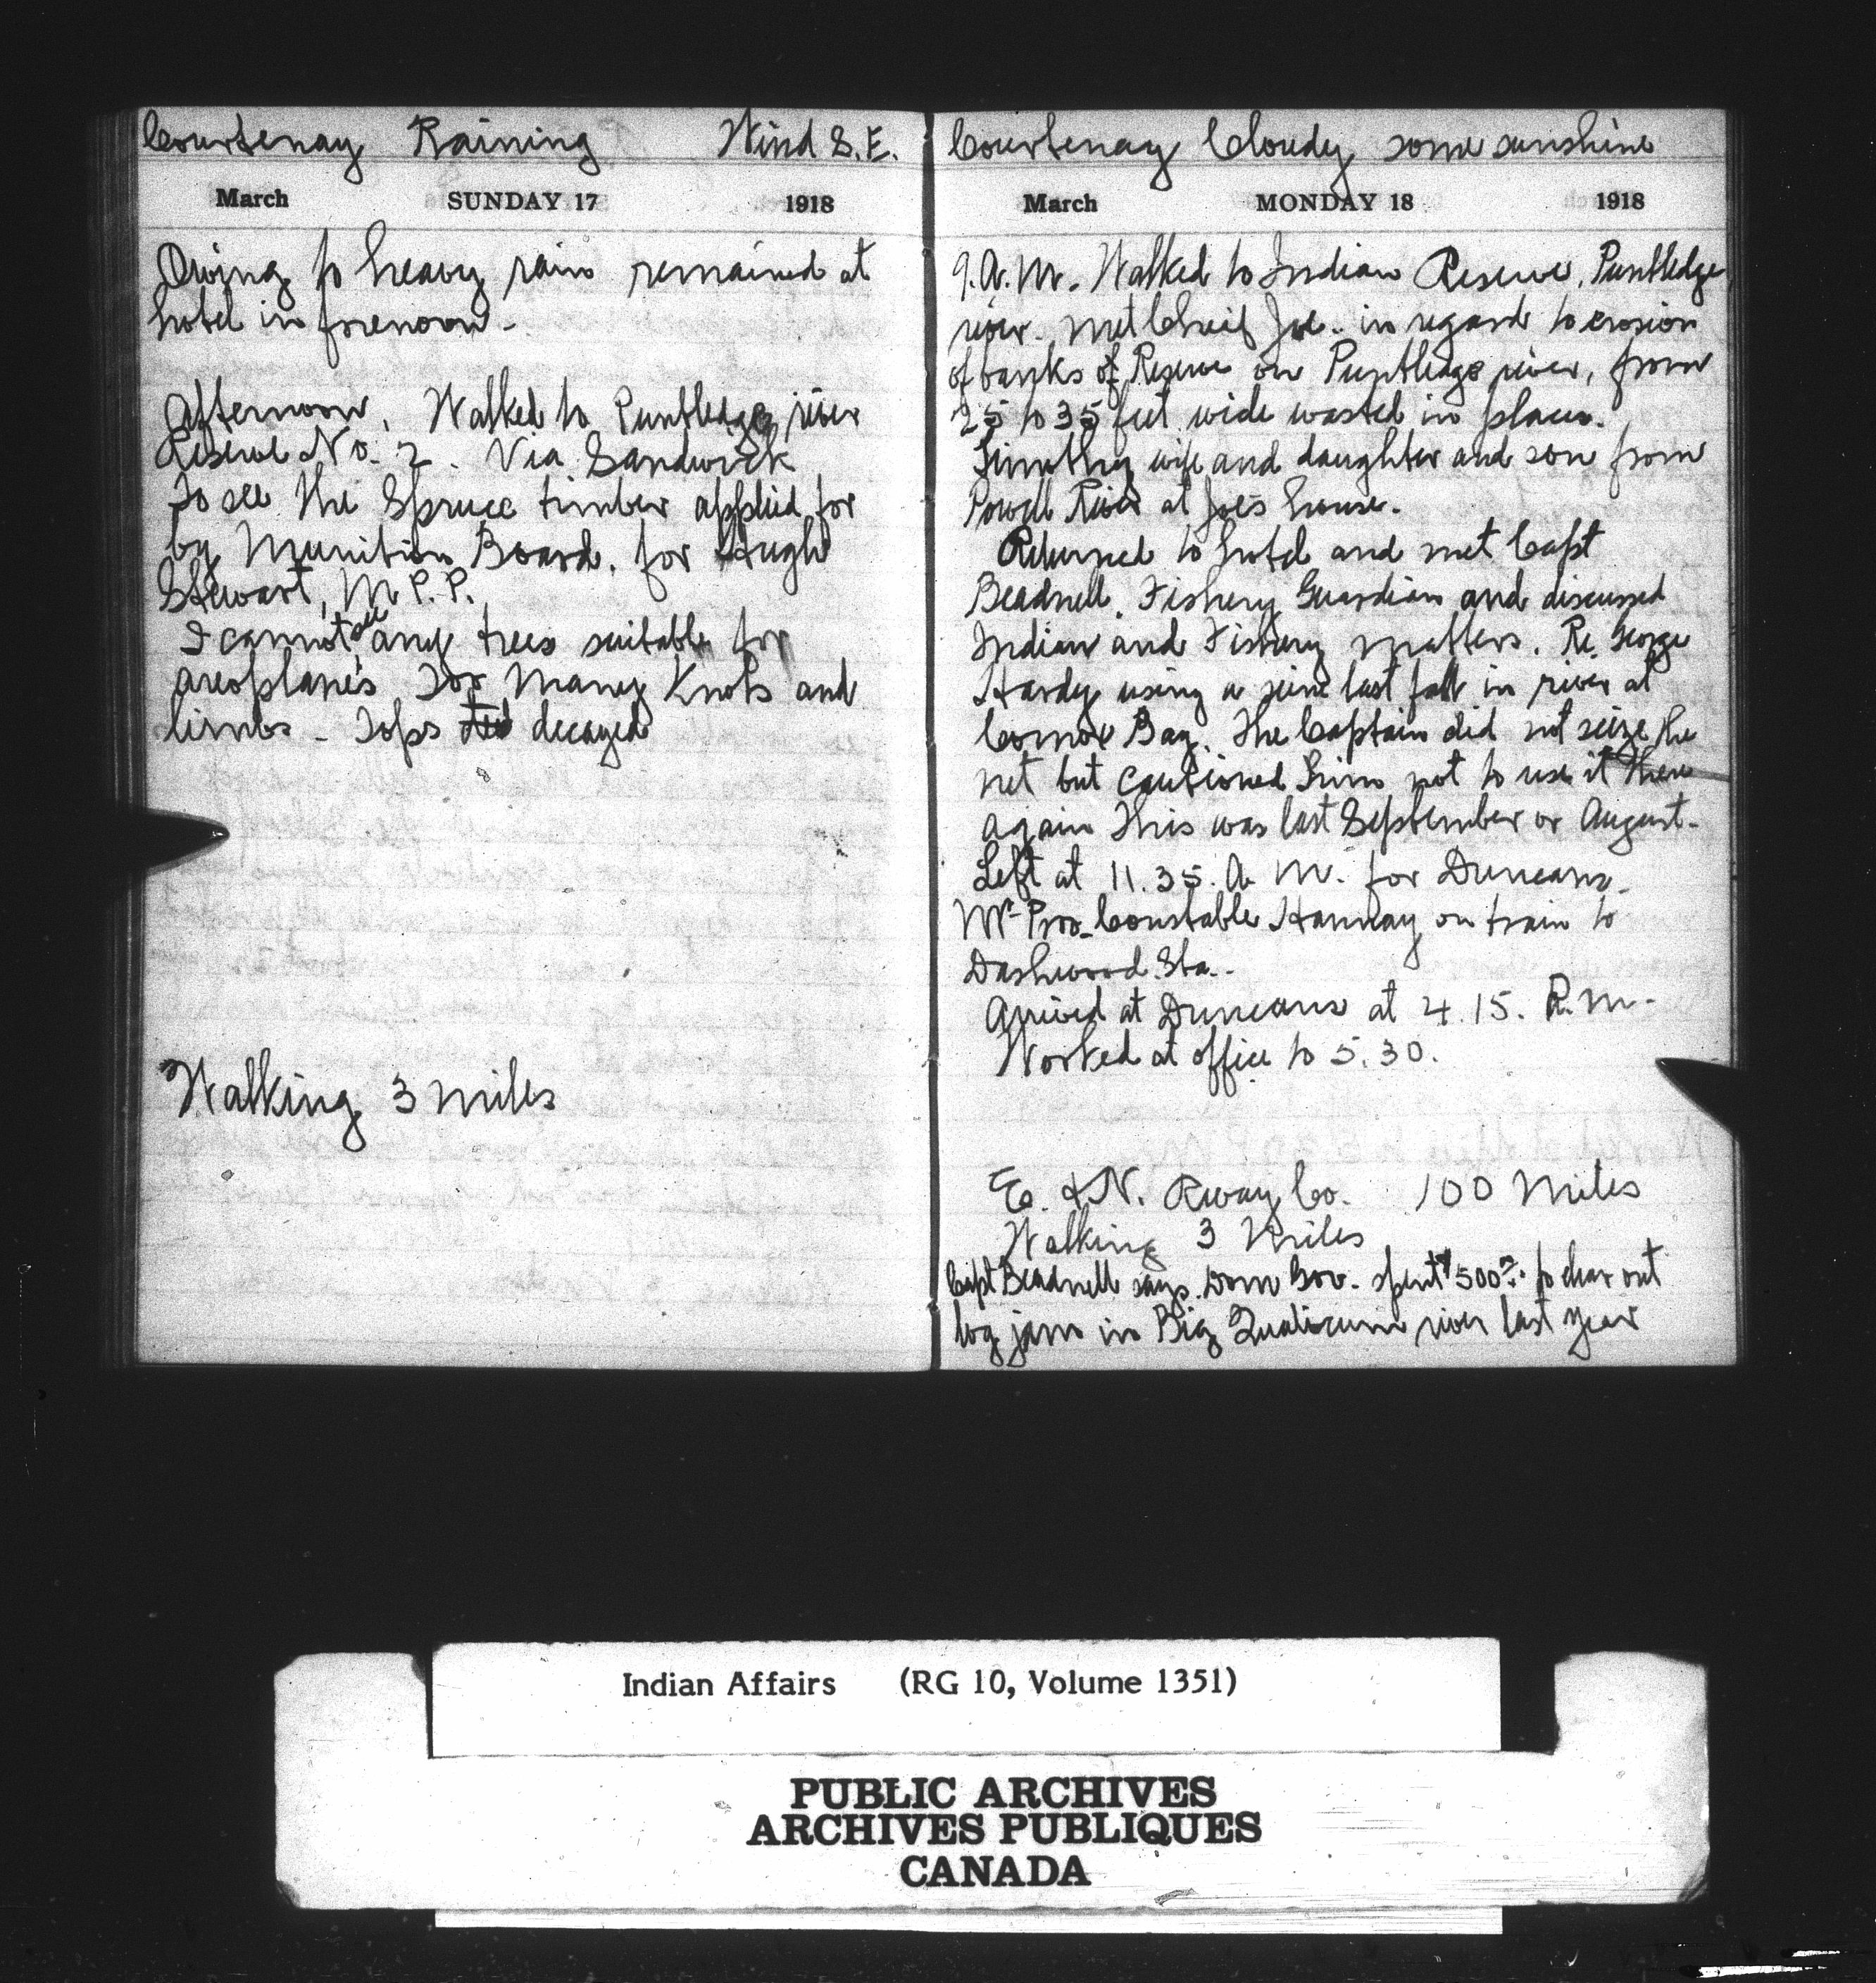 Courtenay Raining Wind S.E.
March SUNDAY 17 1918
Owing to heavy rain remained at
hotel in forenoon.
Afternoon. Walked to Puntledge river
Reserve No. 2. Via Sandwick
to see the Spruce timber applied for
by Munition Board. for Hugh
Stewart, M.P.P.
I cannot see any trees suitable for
areoplane's Too Many Knots and
limbs - Tops decayed
Walking 3 miles
Courtenay Cloudy some sunshine
March MONDAY 18 1918
9.A.M. Walked to Indian Reserve, Puntledge
river. Met Cheif Joe. in regard to erosion
of banks of Reserve on Puntledge river, from
25 to 35 feet wide wasted in places.
Timothy wife and daughter and son from
Powell River at Joe's house.
Returned to hotel and met Capt
Beadnell. Fishery Guardian and discussed
Indian and Fishery matters. Re. George
Hardy using a seine last fall in river at
Comox Bay. The Captain did not seize the
net but cautioned him not to use it there
again This was last September or August.
Left at 11.35. A.M. for Duncans.
Mr Pro. Constable Hannay on train to
Dashwood. Sta..
Arrived at Duncans at 4.15. P.M.
Worked at office to 5.30.
E. & N. Rway Co. 100 Miles
Walking 3 Miles
Capt Beadnell says. Dom Gov. spent $500 to clear out
log jam in Big Qualicum river last year
Indian Affairs (RG 10, Volume 1351)
PUBLIC ARCHIVES
ARCHIVES PUBLIQUES
CANADA